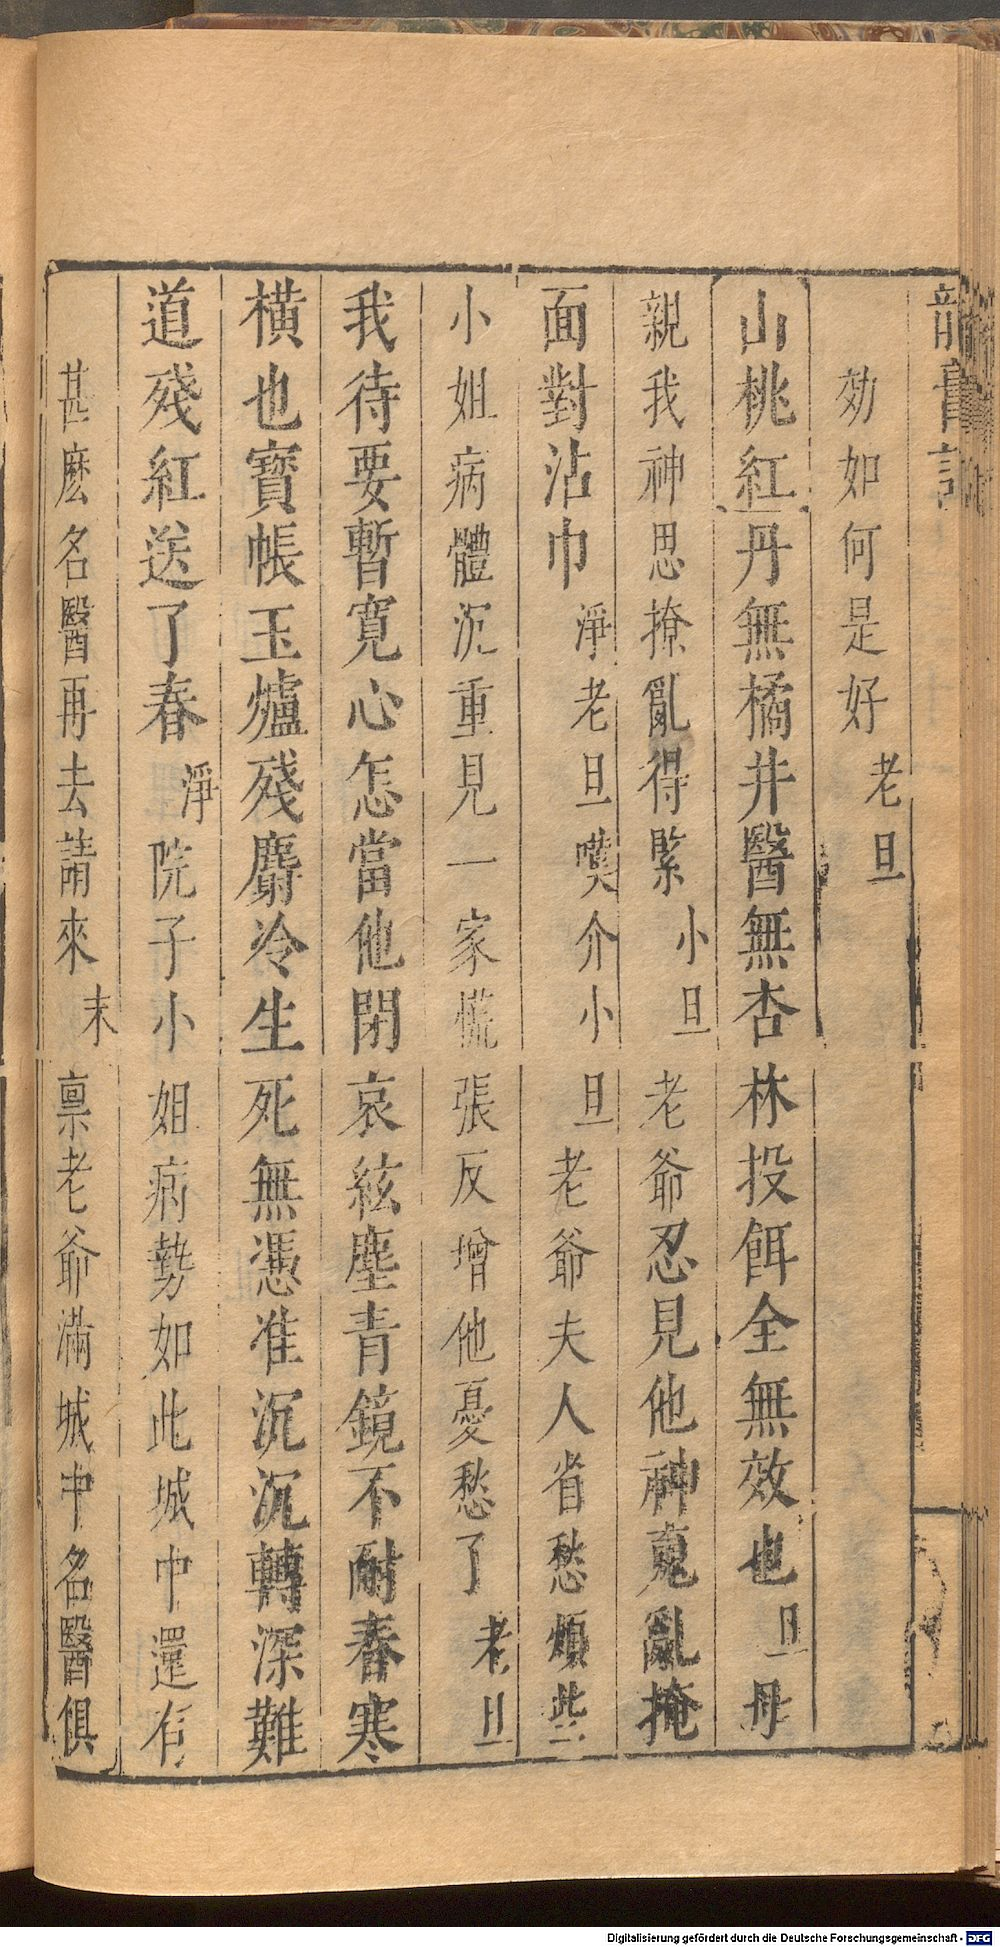 効如何是好老旦
山桃紅丹無橘井醫無杏林投餌全無效也旦母
親我神思撩亂得緊小旦老爺忍見他神䰟亂掩
面對沾巾淨老旦嘆介小旦老爺夫人省愁煩些
小姐病體沉重見一家慌張反增他憂愁了老旦
我待要暫寬心怎當他閉哀絃塵青鏡不耐春寒
橫也寶帳玉爐殘麝冷生死無憑准沉沉轉深難
道殘紅送了春淨院子小姐病勢如此城中還有
甚麽名醫再去請來末禀老爺滿城中名醫俱
Digitalisierung gefördert durch die Deutsche Forschungsgemeinschaft - DFG